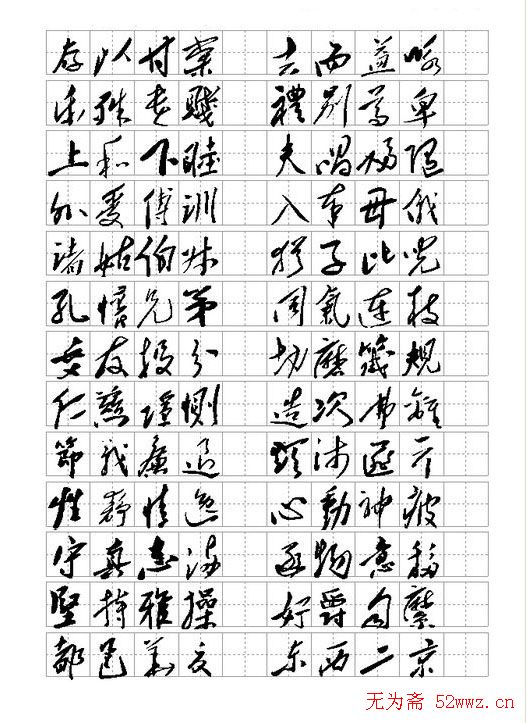 存以甘棠 去而益咏
樂殊貴賤 禮别尊卑
上和下睦 夫唱婦隨
外受傅訓 入奉母儀
諸姑伯叔 猶子比兒
孔懷兄弟 同氣連枝
交友投分 切磨箴規
仁慈隱惻 造次弗離
節義廉退 顛沛匪虧
性靜情逸 心動神疲
守真志滿 逐物意移
堅持雅操 好爵自縻
都邑華夏 东西二京
无为斋 52wwz.cn